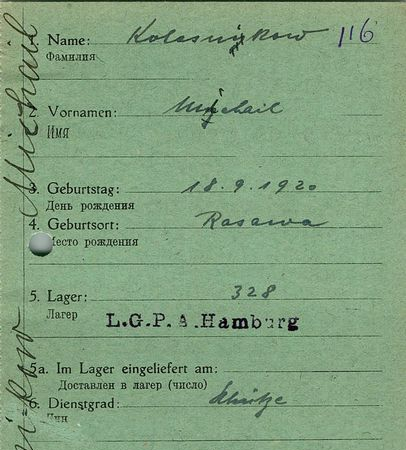 1. Name: Kolesnikow 116
Фамилия
2. Vornamen: Michail
Имя
3. Geburtstag: 18.9.1920
День рождения
4. Geburtsort: Rasawa
Место рождения
5. Lager: 328
Лагер
L.G.P.A. Hamburg
5a. Im Lager eingeliefert am:
Доставлен в лагер (число)
6. Dienstgrad: Schütze
Чин
Michail